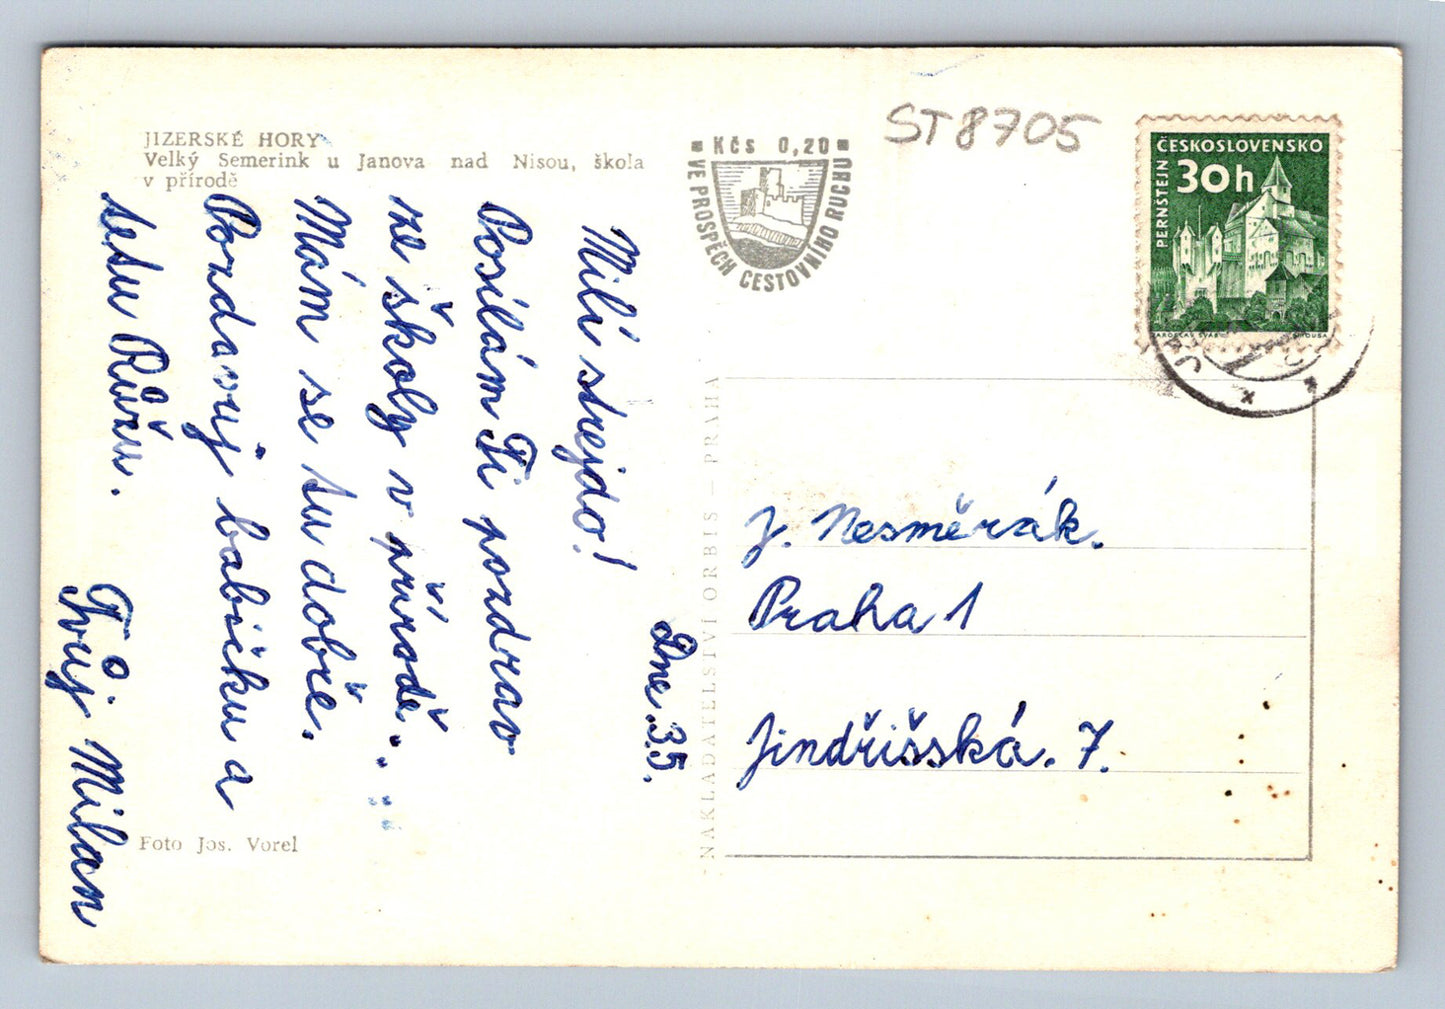 JIZERSKÉ HORY
Velký Semerink u Janova nad Nisou, škola
v přírodě
Kčs 0,20
VE PROSPĚCH CESTOVNÍHO RUCHU
ST 8705
ČESKOSLOVENSKO
30h
PERNŠTEJN
Dne 3.5.
Milí strejdo!
Posílám Ti pozdrav
ze školy v přírodě.
Mám se tu dobře.
Pozdavuj babičku a
tetu Růžu.
Tvůj Milan
NAKLADATELSTVÍ ORBIS — PRAHA
J. Nesměrák.
Praha 1
Jindřišská. 7.
Foto Jos. Vorel